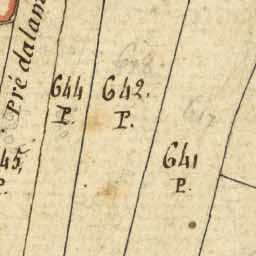 Pré dalam
644
P.
642.
P.
641
P.
45.
P.